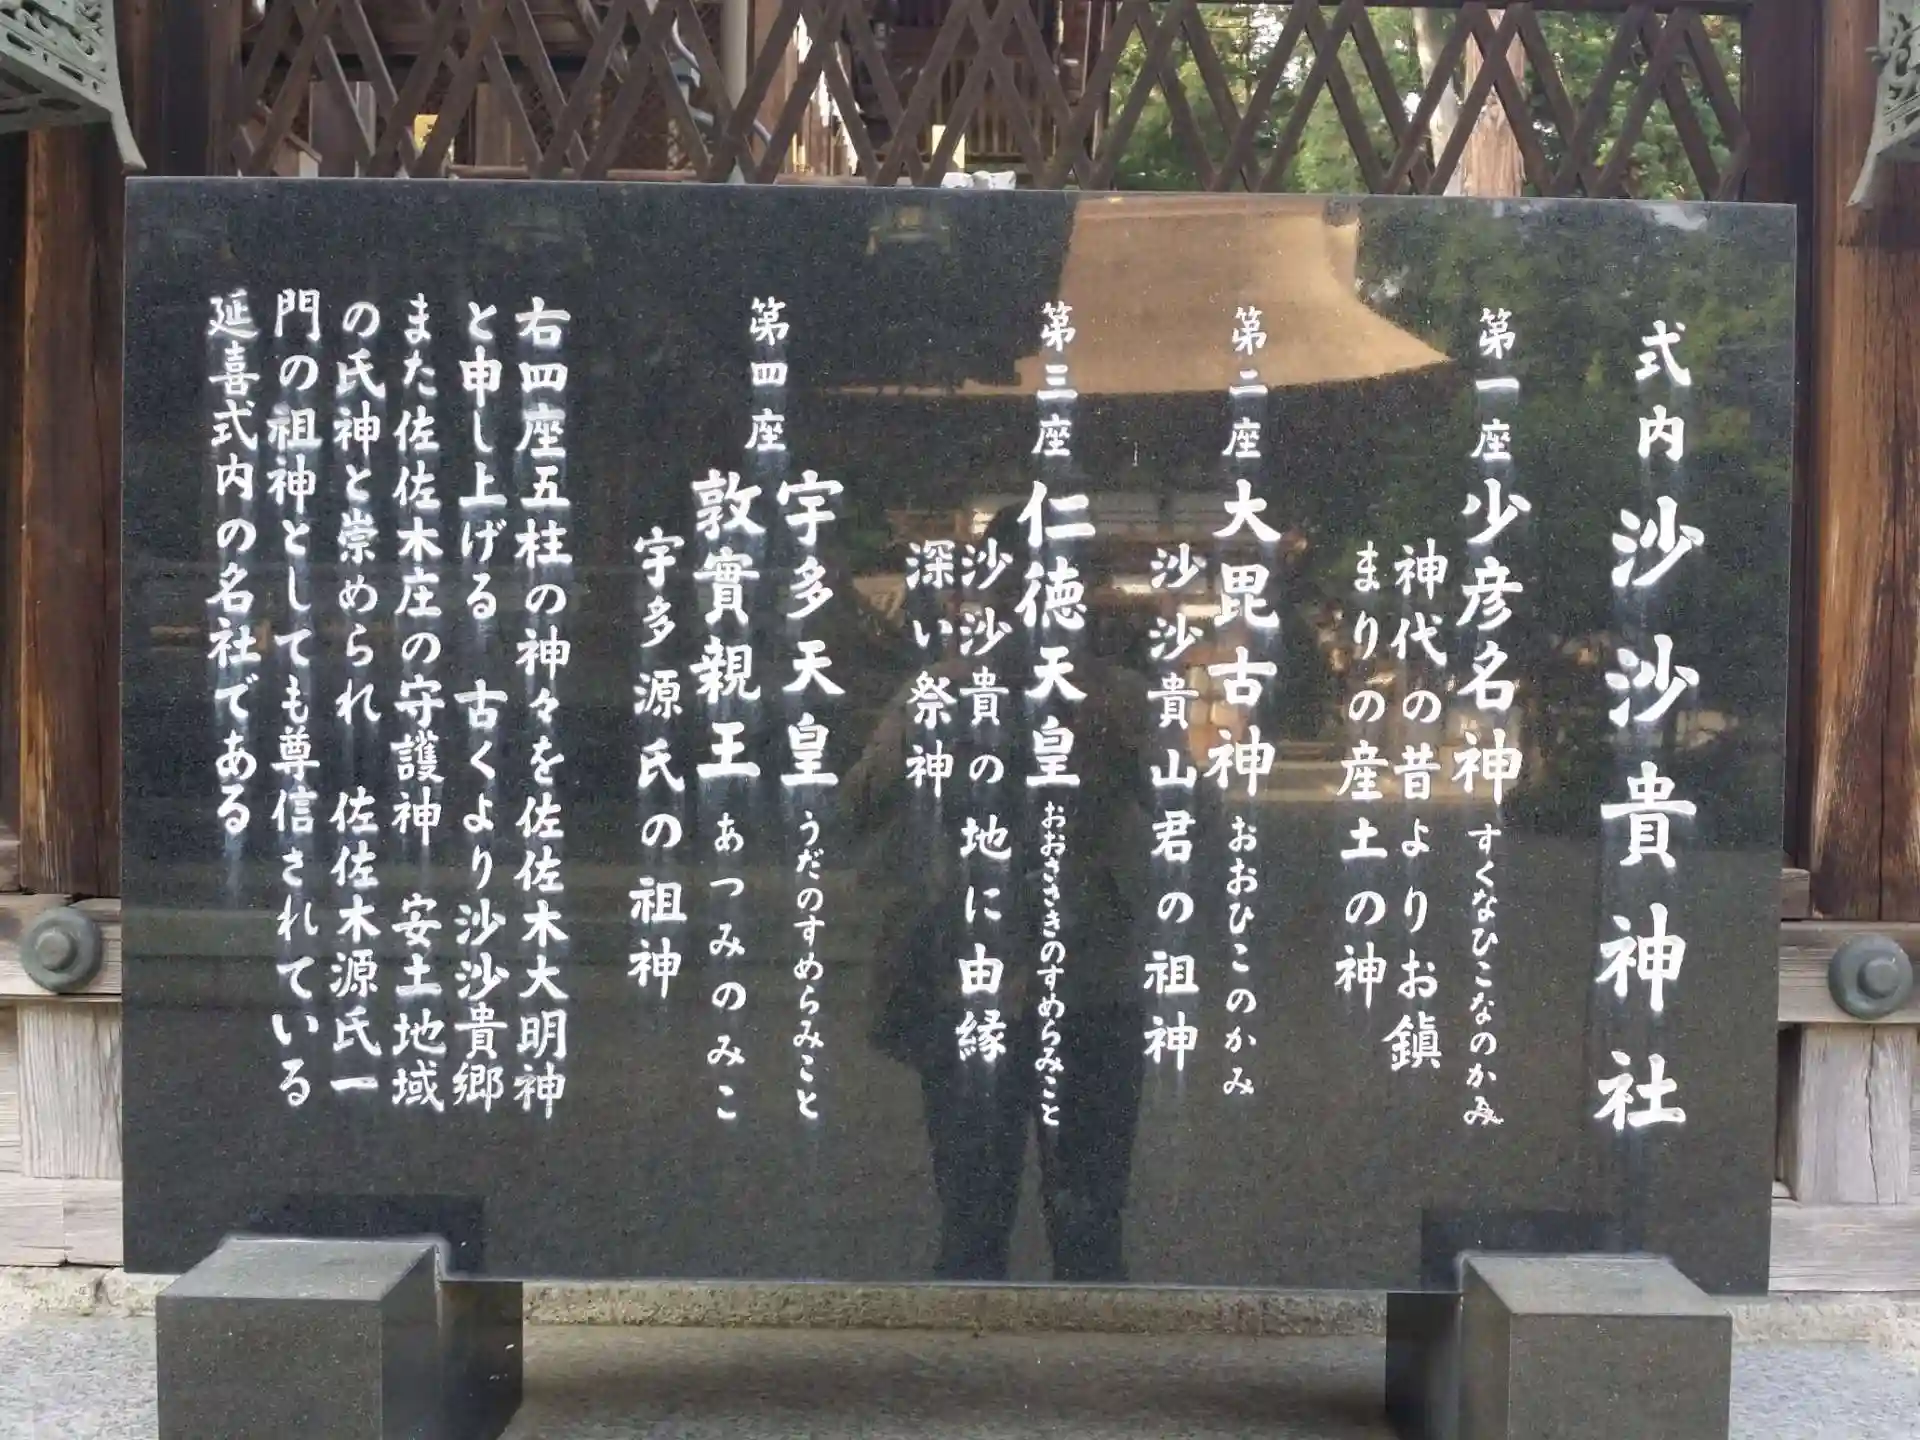 式内 沙沙貴神社
第一座 少彦名神 すくなひこなのかみ
神代の昔よりお鎭
まりの産土の神
第二座 大毘古神 おおひこのかみ
沙沙貴山君の祖神
第三座 仁徳天皇 おおさざきのすめらみこと
沙沙貴の地に由縁
深い祭神
第四座 宇多天皇 うだのすめらみこと
敦實親王 あつみのみこ
宇多源氏の祖神
右四座五柱の神々を佐佐木大明神
と申し上げる 古くより沙沙貴郷
また佐佐木庄の守護神 安土地域
の氏神と崇められ 佐佐木源氏一
門の祖神としても尊信されている
延喜式内の名社である